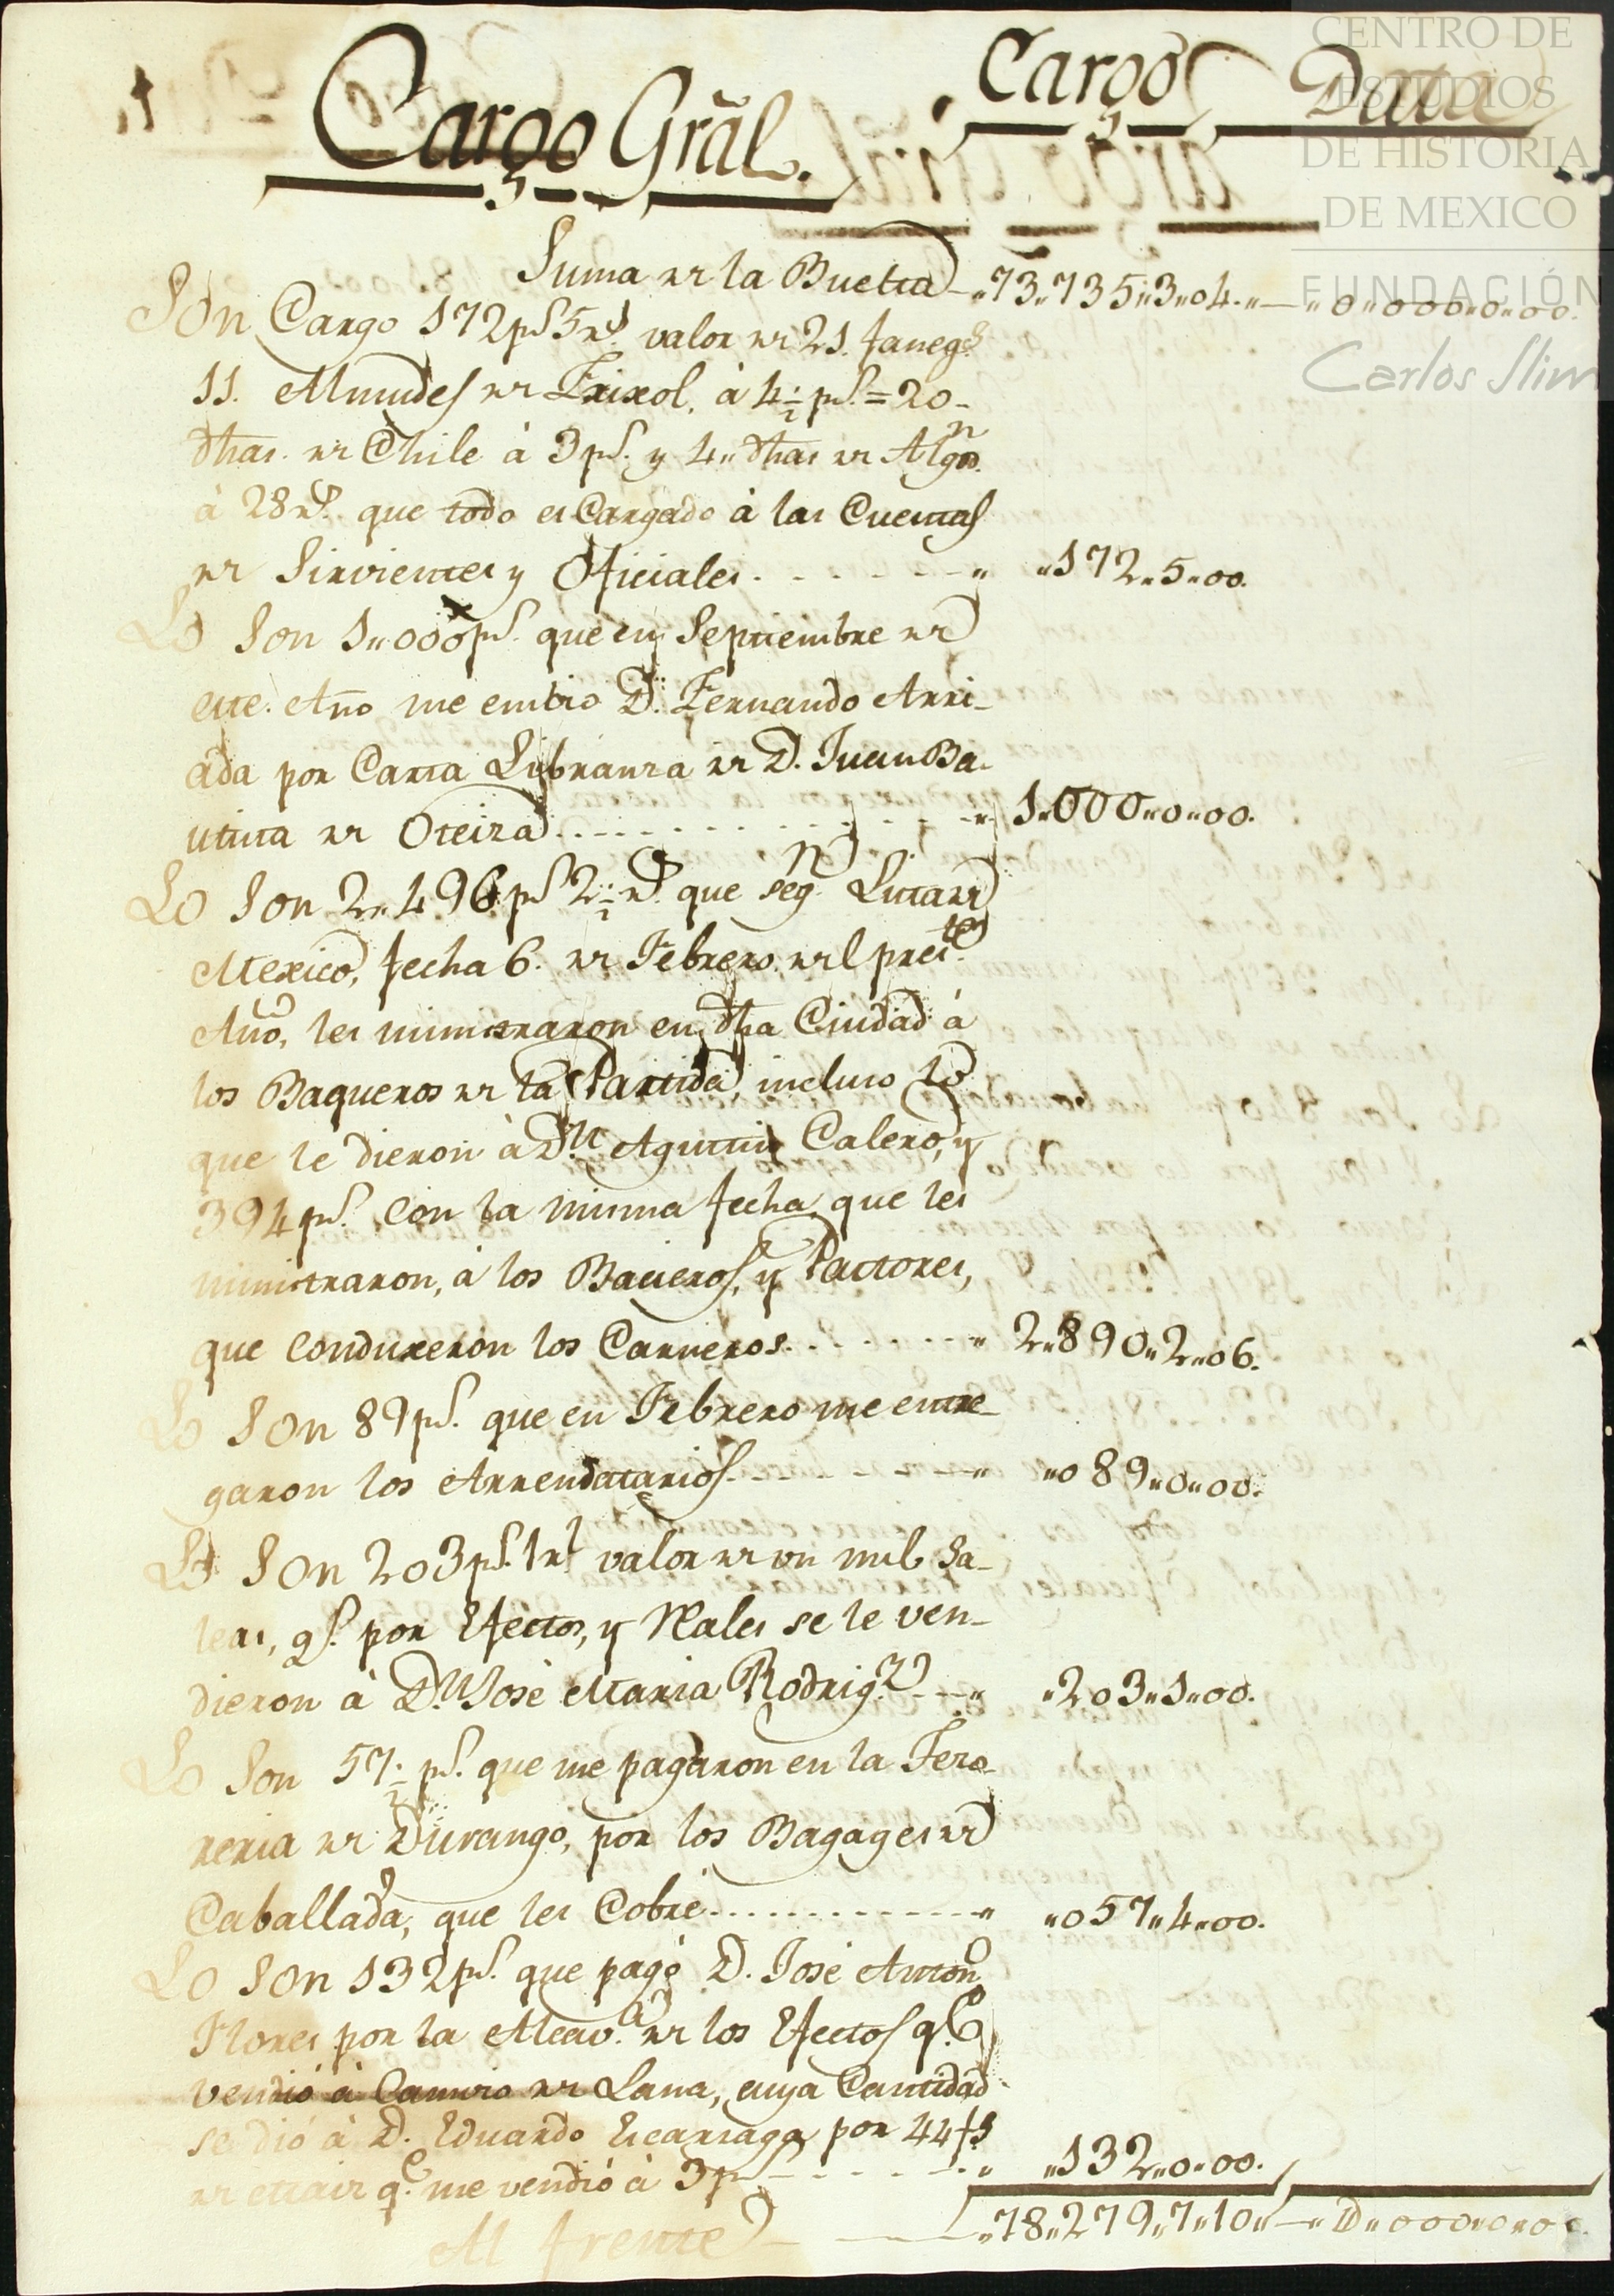 Cargo Grãl.
Cargo Data
CENTRO DE
ESTUDIOS
DE HISTORIA
DE MEXICO
FUNDACIÓN
Carlos Slim
Suma de la Buelta „73„735„3„04.„ „0„000„0„00.
Son Cargo 172 ps 5 rs. valor de 21. faneg.s
11. Almudes de Frixol, à 4½ ps. = 20
dhas. de Chile à 3 ps. y 4„ dhas de Algon.
à 28 rs. que todo es Cargado à las Cuentas
de Sirvientes y Oficiales. „ „172„5„00.
Lo Son 1„000 ps. que en Septiembre de
este. Año me embio D. Fernando Arri-
ada por Carta Libranza de D. Juan Ba-
utista de Oteiza „ 1„000„0„00.
Lo Son 2„496 ps 2½ rs. que segn. Lista de
Mexico, fecha 6. de Febrero. del preste.
Año, les ministraron en dha Ciudad à
los Baqueros de la Partida, incluso lo
que le dieron à Dn Agustin Calero, y
394 ps. con la misma fecha, que les
ministraron, à los Bacieros, y Pastores,
que conduxeron los Carneros. „ 2„890„2„06.
Lo Son 89 ps. que en Febrero me entre-
garon los Arrendatarios „ „089„0„00.
Lo Son 203 ps. 1 rl valor de un mil Sa-
leas, qe. por Efectos, y Reales se le ven-
dieron à Dn José Maria Rodrigz. „ „203„1„00.
Lo Son 57½ ps. que me pagaron en la Teso-
reria de Durango, por los Bagages de
Caballada, que les Cobré „ „057„4„00.
Lo Son 132 ps. que pagó D. José Anton.o
Flores por la Alcav.a de los Efectos qe.
vendió à Camvio de Lana, cuya Cantidad
se dió à D. Eduardo Escarzaga por 44 fs
de Maiz qe. me vendió à 3 ps „ „132„0„00.
„78„279„7„10„ „0„000„0„00.
Al frente